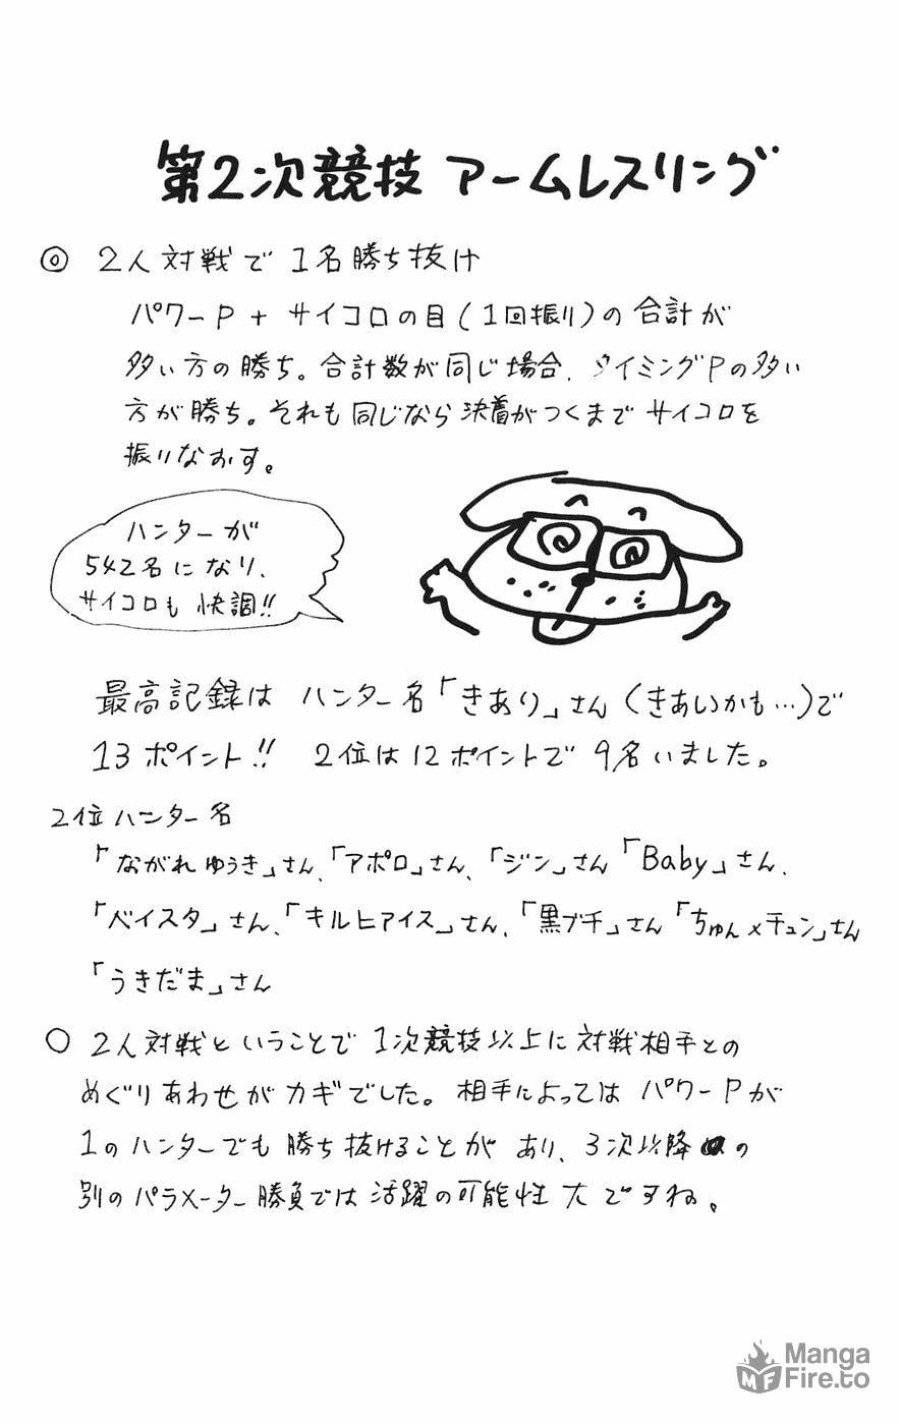 第2次競技 アームレスリング
◎ 2人対戦で1名勝ち抜け
パワーP + サイコロの目(1回振り)の合計が
多い方の勝ち。合計数が同じ場合、タイミングPの多い
方が勝ち。それも同じなら決着がつくまでサイコロを
振りなおす。
ハンターが
542名になり、
サイコロも快調!!
最高記録はハンター名「きあり」さん(きあいかも…)で
13ポイント!! 2位は12ポイントで9名いました。
2位ハンター名
「ながれゆうき」さん、「アポロ」さん、「ジン」さん「Baby」さん、
「ベイスタ」さん、「キルヒアイス」さん、「黒ブチ」さん「ちゅん×チュン」さん
「うきだま」さん
○ 2人対戦ということで1次競技以上に対戦相手との
めぐりあわせがカギでした。相手によってはパワーPが
1のハンターでも勝ち抜けることがあり、3次以降の
別のパラメーター勝負では活躍の可能性大ですね。
Manga
MF Fire.to